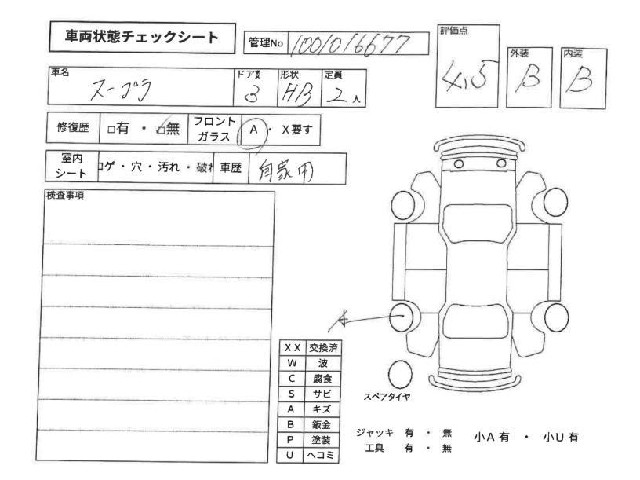 車両状態チェックシート
管理No 1001016677
評価点 4.5
外装 B
内装 B
車名 スープラ
ドア数 3
形状 HB
定員 2人
修復歴 □有・□無
フロントガラス A・X要す
室内シート コゲ・穴・汚れ・破れ
車歴 自家用
検査事項
A
XX 交換済
W 波
C 腐食
S サビ
A キズ
B 鈑金
P 塗装
U ヘコミ
スペアタイヤ
ジャッキ 有・無
工具 有・無
小A有・小U有